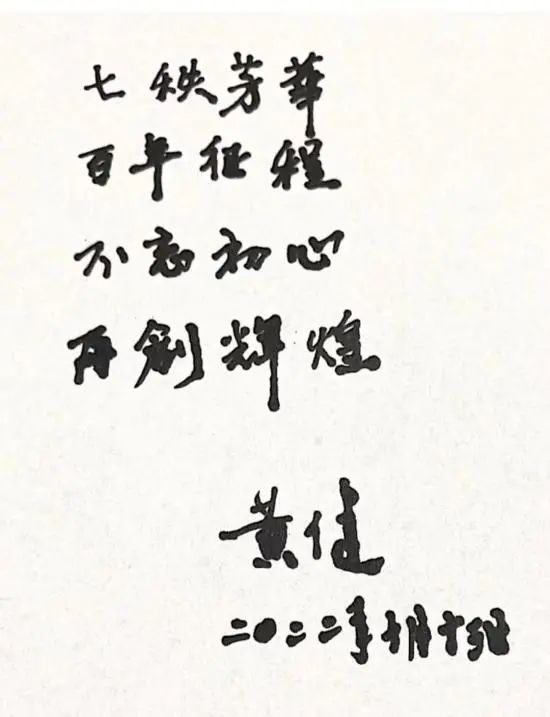 七秩芳華
百年征程
不忘初心
再創輝煌
黄健
二〇二二年十月十